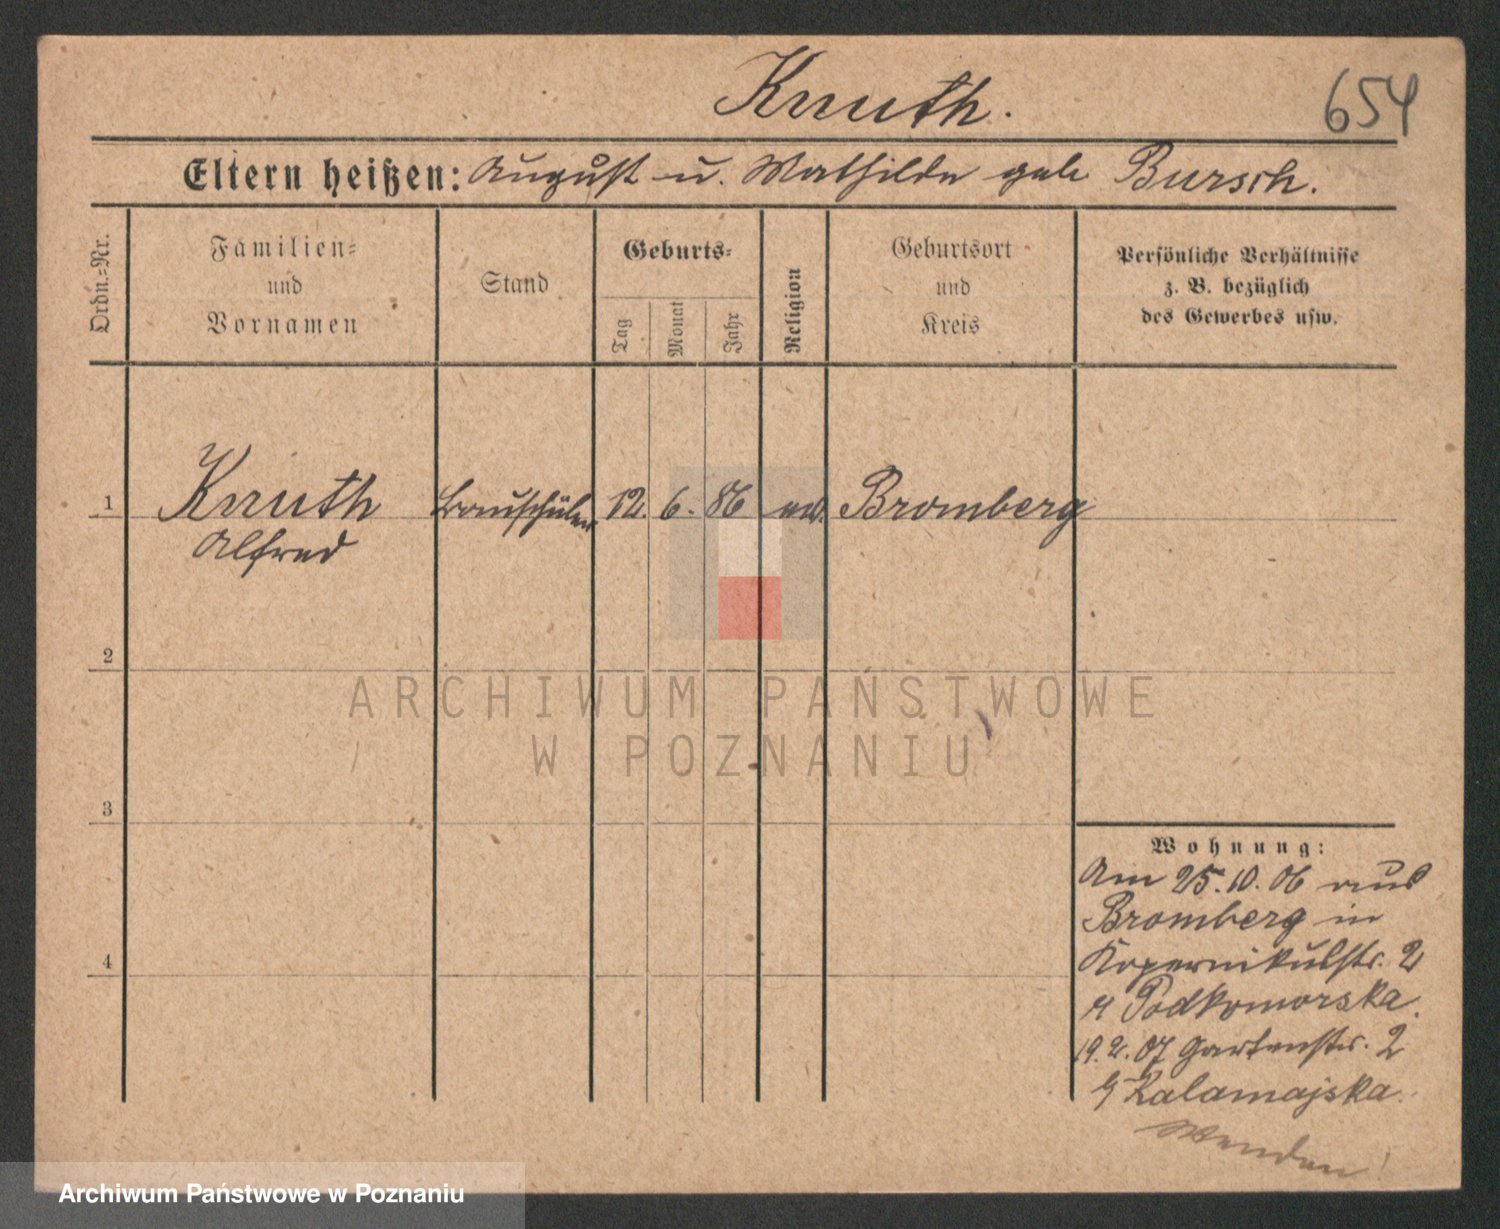 Knuth.
654
Eltern heißen: August u. Mathilde geb. Bursch.
Ordn.-Nr.
Familien-
und
Vornamen
Stand
Geburts-
Tag
Monat
Jahr
Religion
Geburtsort
und
Kreis
Persönliche Verhältnisse
z. B. bezüglich
des Gewerbes usw.
1 Knuth Bauschüler 12. 6. 86 ev. Bromberg
Alfred
2
ARCHIWUM PAŃSTWOWE
W POZNANIU
3
Wohnung:
Am 25.10.06 aus
Bromberg in
4
Kopernikusstr. 2
Podkomorska.
19.2.07 Gartenstr. 2
Kalamajska.
Wenden!
Archiwum Państwowe w Poznaniu